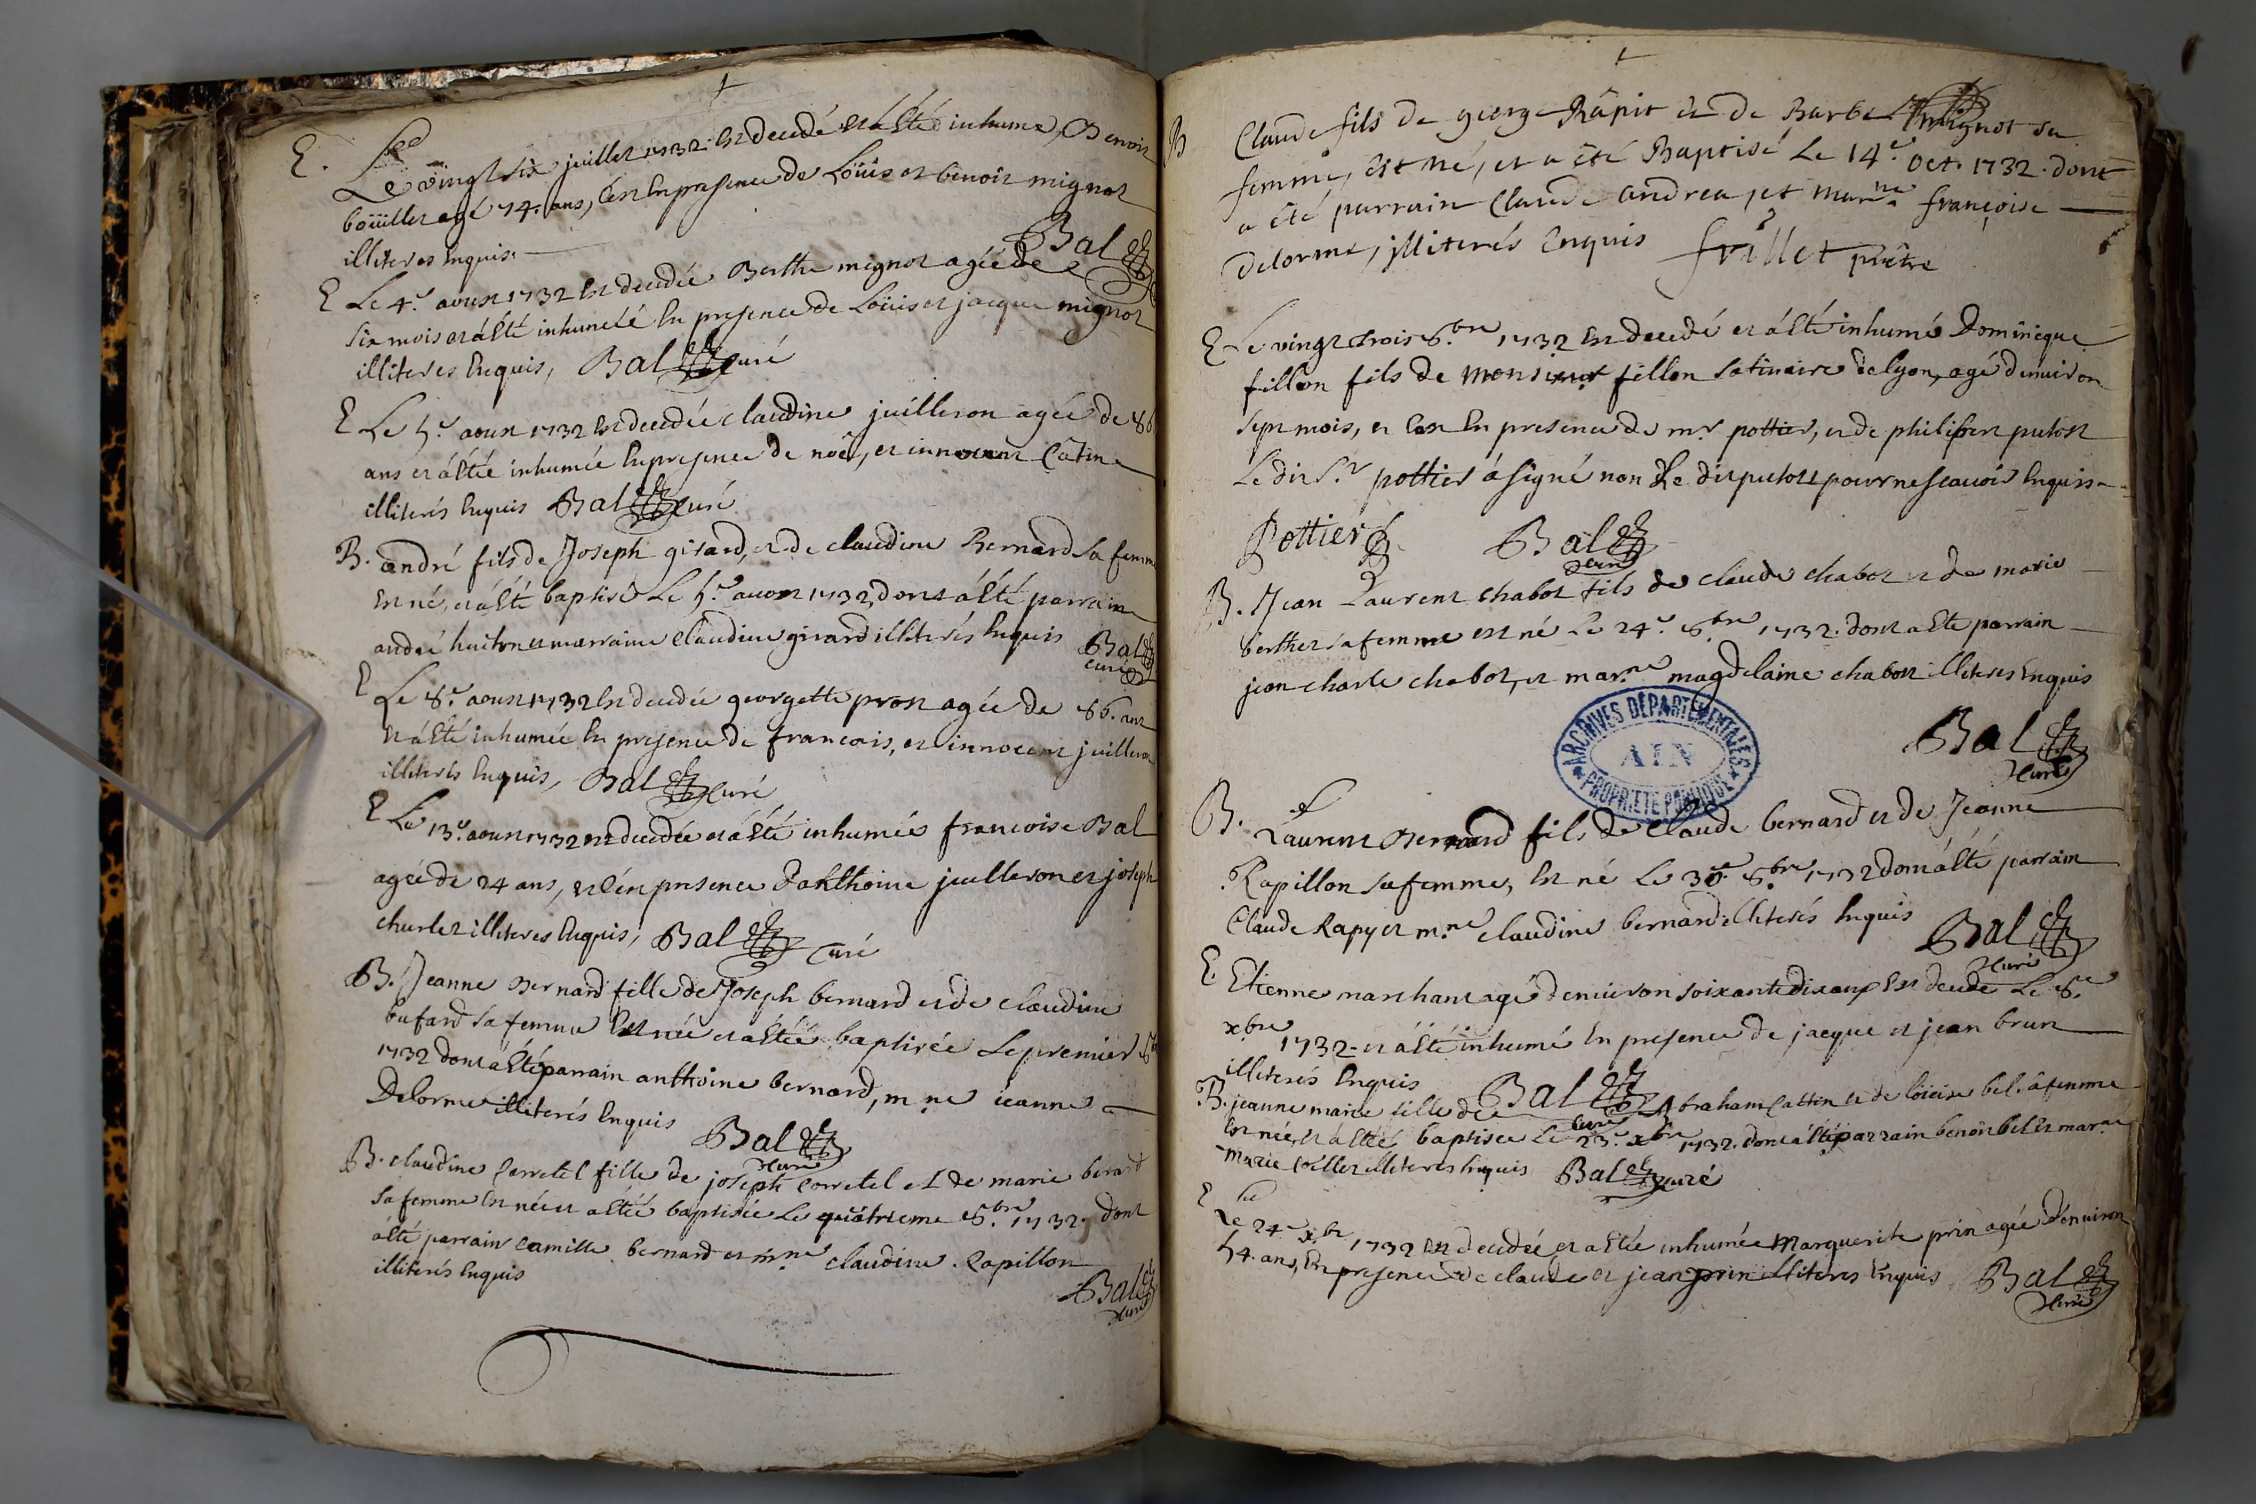 E. Le vingt six juillet 1732. est decedé et a esté inhumé, Benoit
boüillet agé 74. ans, c'est en presence de Loüis et benoit mignot
illiteres enquis.
Bal
E Le 4.e aoust 1732 est decedée Berthe mignot agée de
six mois et a esté inhumeé en presence de Loüis et jacque mignot
illiteres enquis, Bal curé
E Le 5.e aoust 1732 est decedée claudine juilleron agée de 86
ans et a estée inhumée en presence de noël, et innocent Catin
illiterés enquis Bal curé
B. andré fils de Joseph girard, et de claudine Bernard sa femme
est né, et a esté baptisé Le 5.e aoust 1732, dont a esté parrain
andré huiton et marraine Claudine girard illiterés enquis Bal
curé
E Le 8.e aoust 1732 est decedée georgette prost agée de 86. ans
et a esté inhumée en presence de francois, et innocent juilleron
illiterés enquis, Bal curé
E Le 13.e aoust 1732 est decedée et a esté inhumée francoise Bal
agée de 24 ans, et c'en presence d'anthoine juilleron et joseph
charlet illiteres enquis, Bal curé
B. Jeanne Bernard fille de Joseph bernard et de claudine
bufard sa femme est née et a estée baptisée Le premier 8bre
1732 dont a esté parrain anthoine bernard, m.ne jeanne
Delorme illiterés enquis Bal
curé
B. claudine Corretel fille de joseph Corretel et de marie berard
sa femme est née et a estée baptisée Le quatrieme 8.bre 1732, dont
a esté parrain camille bernard et m.ne claudine Rapillon
illiterés enquis
Bal
curé
B Claude fils de george Râpit et de Barbe mignot sa
femme, est né, et a été Baptisé Le 14.e oct. 1732. dont
a été parrain Claude andrea, et marne françoise
Delorme, illiterés Enquis frillet prêtre
E Le vingt trois 8.bre 1732 est decedé et a esté inhumé Dominique
fillon fils de monsieur fillon satinaire de lyon, agé d'enuiron
sept mois, et c'est en presence de m.r pottier, et de philibert putost
Le dit S.r pottier a signé non Le dit putost pour ne scauoir enquis
Pottier Bal
curé
B. Jean Laurent chabot fils de claude chabot et de marie
berthet sa femme est né Le 24.e 8.bre 1732. dont a esté parrain
jean charle chabot, et mar.ne magdelaine chabot illiteres enquis
Bal
curé
ARCHIVES DEPARTEMENTALES
AIN
PROPRIETE PUBLIQUE
B. Laurent Bernard fils de Claude bernard et de Jeanne
Rapillon sa femme, est né Le 30.e 8.bre 1732 dont a esté parrain
Claude Rapy et m.ne claudine bernard illiterés enquis Bal
curé
E. Etienne marchant agé d'enuiron soixante dix ans est decedé Le 8.e
xbre 1732. et a esté inhumé en presence de jacque et jean brun
illiterés enquis Bal
curé
B. jeanne marie fille de Abraham Cattin et de loüise bel sa femme
est née, et a estée baptisée Le 23.e xbre 1732. dont a esté parrain benoit bel et mar.ne
marie illiteres enquis Bal curé
E Le 24.e xbre 1732 est decedée et a estée inhumée Marguerite prin agée d'enuiron
54. ans, en presence de claude et jean prin illiteres enquis Bal
curé